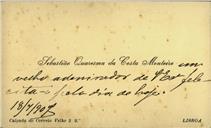 Sebastião Quaresma da Costa Monteiro
um
velho admirador de V. Exª feli-
cita-o pelo dia de hoje
18/4/907
Calçada do Correio Velho 3 2.º
LISBOA